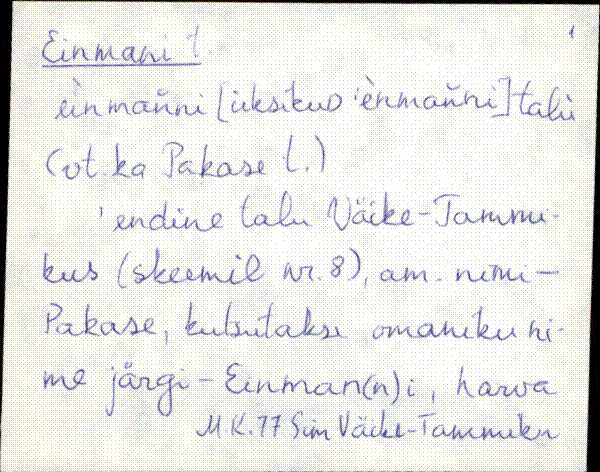 1
Einmani t.
èinmaňni [üksikus 'èinmaňni] talù
(vt. ka Pakase t.)
'endine talu Väike-Tammi-
kus (skeemil nr. 8), am. nimi -
Pakase, kutsutakse omaniku ni-
me järgi - Einman(n)i, harva
M.K. 77 Sim Väike-Tammiku